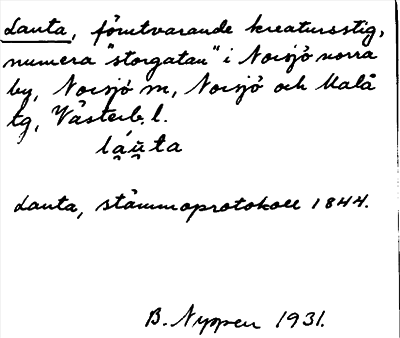 Lauta, förutvarande kreatursstig,
numera "storgatan" i Norsjö norra
by, Norsjö m, Norsjö och Malå
tg, Västerb. l.
láu̯ta
Lauta, stämmoprotokoll 1844.
B. Nyppen 1931.